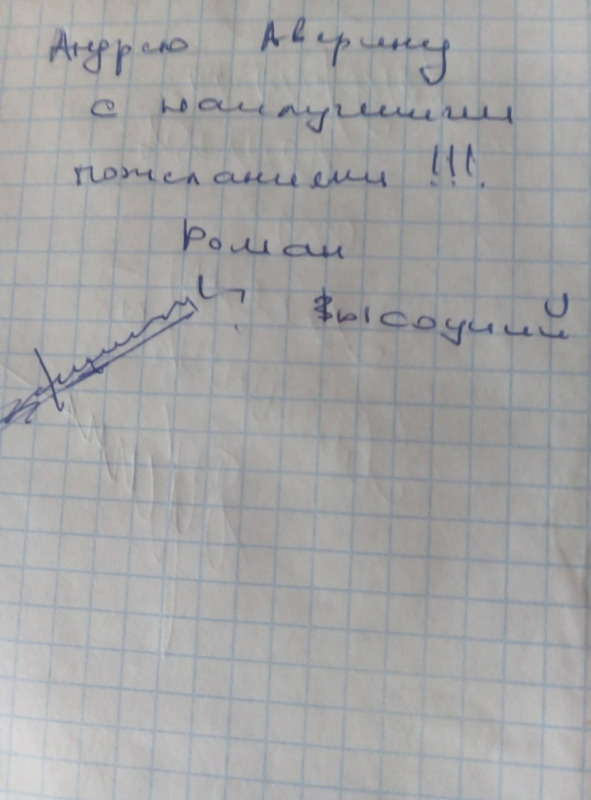 Андрею Аверину
с наилучшими
пожеланиями !!!
Роман
Высоцкий